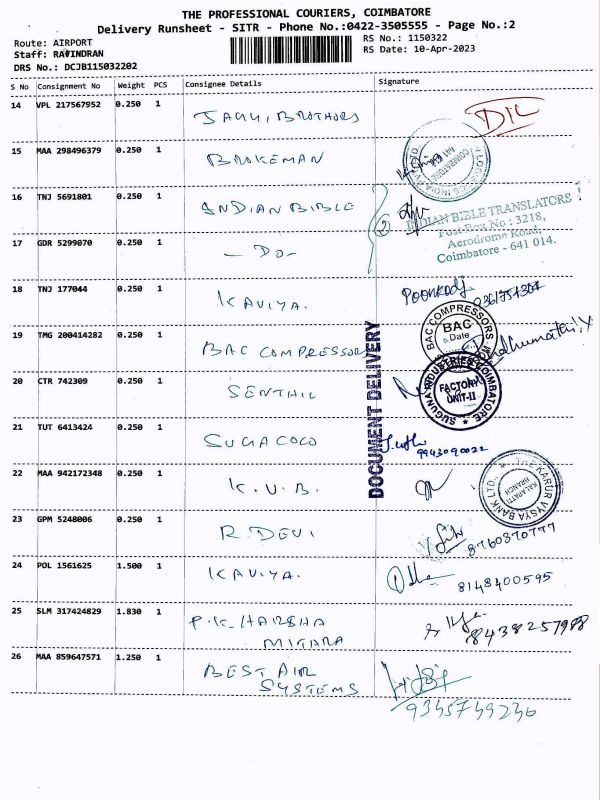 THE PROFESSIONAL COURIERS, COIMBATORE
Delivery Runsheet - SITR - Phone No.:0422-3505555 - Page No.:2
Route: AIRPORT
RS No.: 1150322
Staff: RAVINDRAN
RS Date: 10-Apr-2023
DRS No.: DCJB115032202
S No Consignment No Weight PCS Consignee Details Signature
14 VPL 217567952 0.250 1 BROTHORS
15 MAA 298496379 0.250 1 BROKEMAN
COIMBATORE
16 TNJ 5691801 0.250 1 INDIAN BIBLE
INDIAN BIBLE TRANSLATORS
Post Box No : 3218,
Aerodrome Road,
Coimbatore - 641 014.
17 GDR 5299070 0.250 1 - DO - 2
18 TNJ 177044 0.250 1 KAVIYA.
19 TMG 200414282 0.250 1 BAC COMPRESSORS
BAC COMPRESSORS
BAC
Date
DOCUMENT DELIVERY
20 CTR 742309 0.250 1 SENTHIL
SUGUNA INDUSTRIES COIMBATORE
FACTORY
UNIT-II
21 TUT 6413424 0.250 1 SUGACOCO
9943090022
22 MAA 942172348 0.250 1 K.V.B.
THE KARUR VYSYA BANK LTD.
KALAPATTI
BRANCH
23 GPM 5248006 0.250 1 R. DEVI
8760370777
24 POL 1561625 1.500 1 KAVIYA.
8148400595
25 SLM 317424829 1.830 1 P.K. HARSHA
MITARA
8438257988
26 MAA 859647571 1.250 1 BEST AIR
SYSTEMS
9345749236